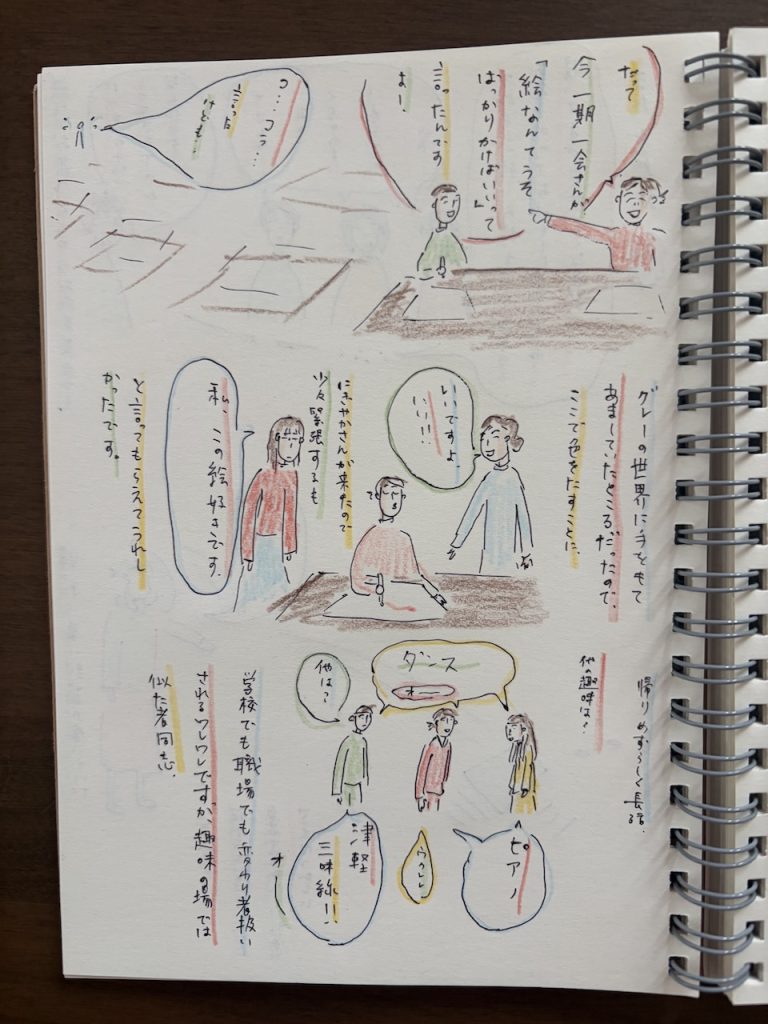 だって
今一期一会さんが
「絵なんてうそ
ばっかりかけばいいって」
言ったんです
よー。
コ…コラっ…
言った
けども…
グレーの世界に手をもて
あましていたところだったので、
ここで色をたすことに、
いいですよ、
いい!!
にぎやかさんが来たので
少々緊張するも
私、この絵好きです。
と言ってもらえてうれし
かったです。
帰りめずらしく長話。
他の趣味は?
ダンス
オー
他は?
ピアノ
ウクレレ
津軽
三味線!!
オー
学校でも職場でも変わり者扱い
されるワレワレですが、趣味の場では
似た者同志。